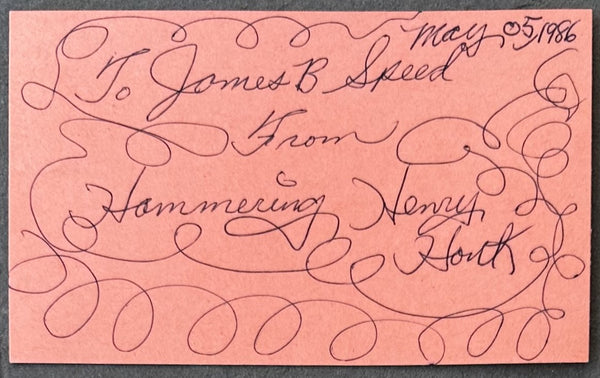 May 05, 1986
To James B Speed
From
Hammering Henry
Houk